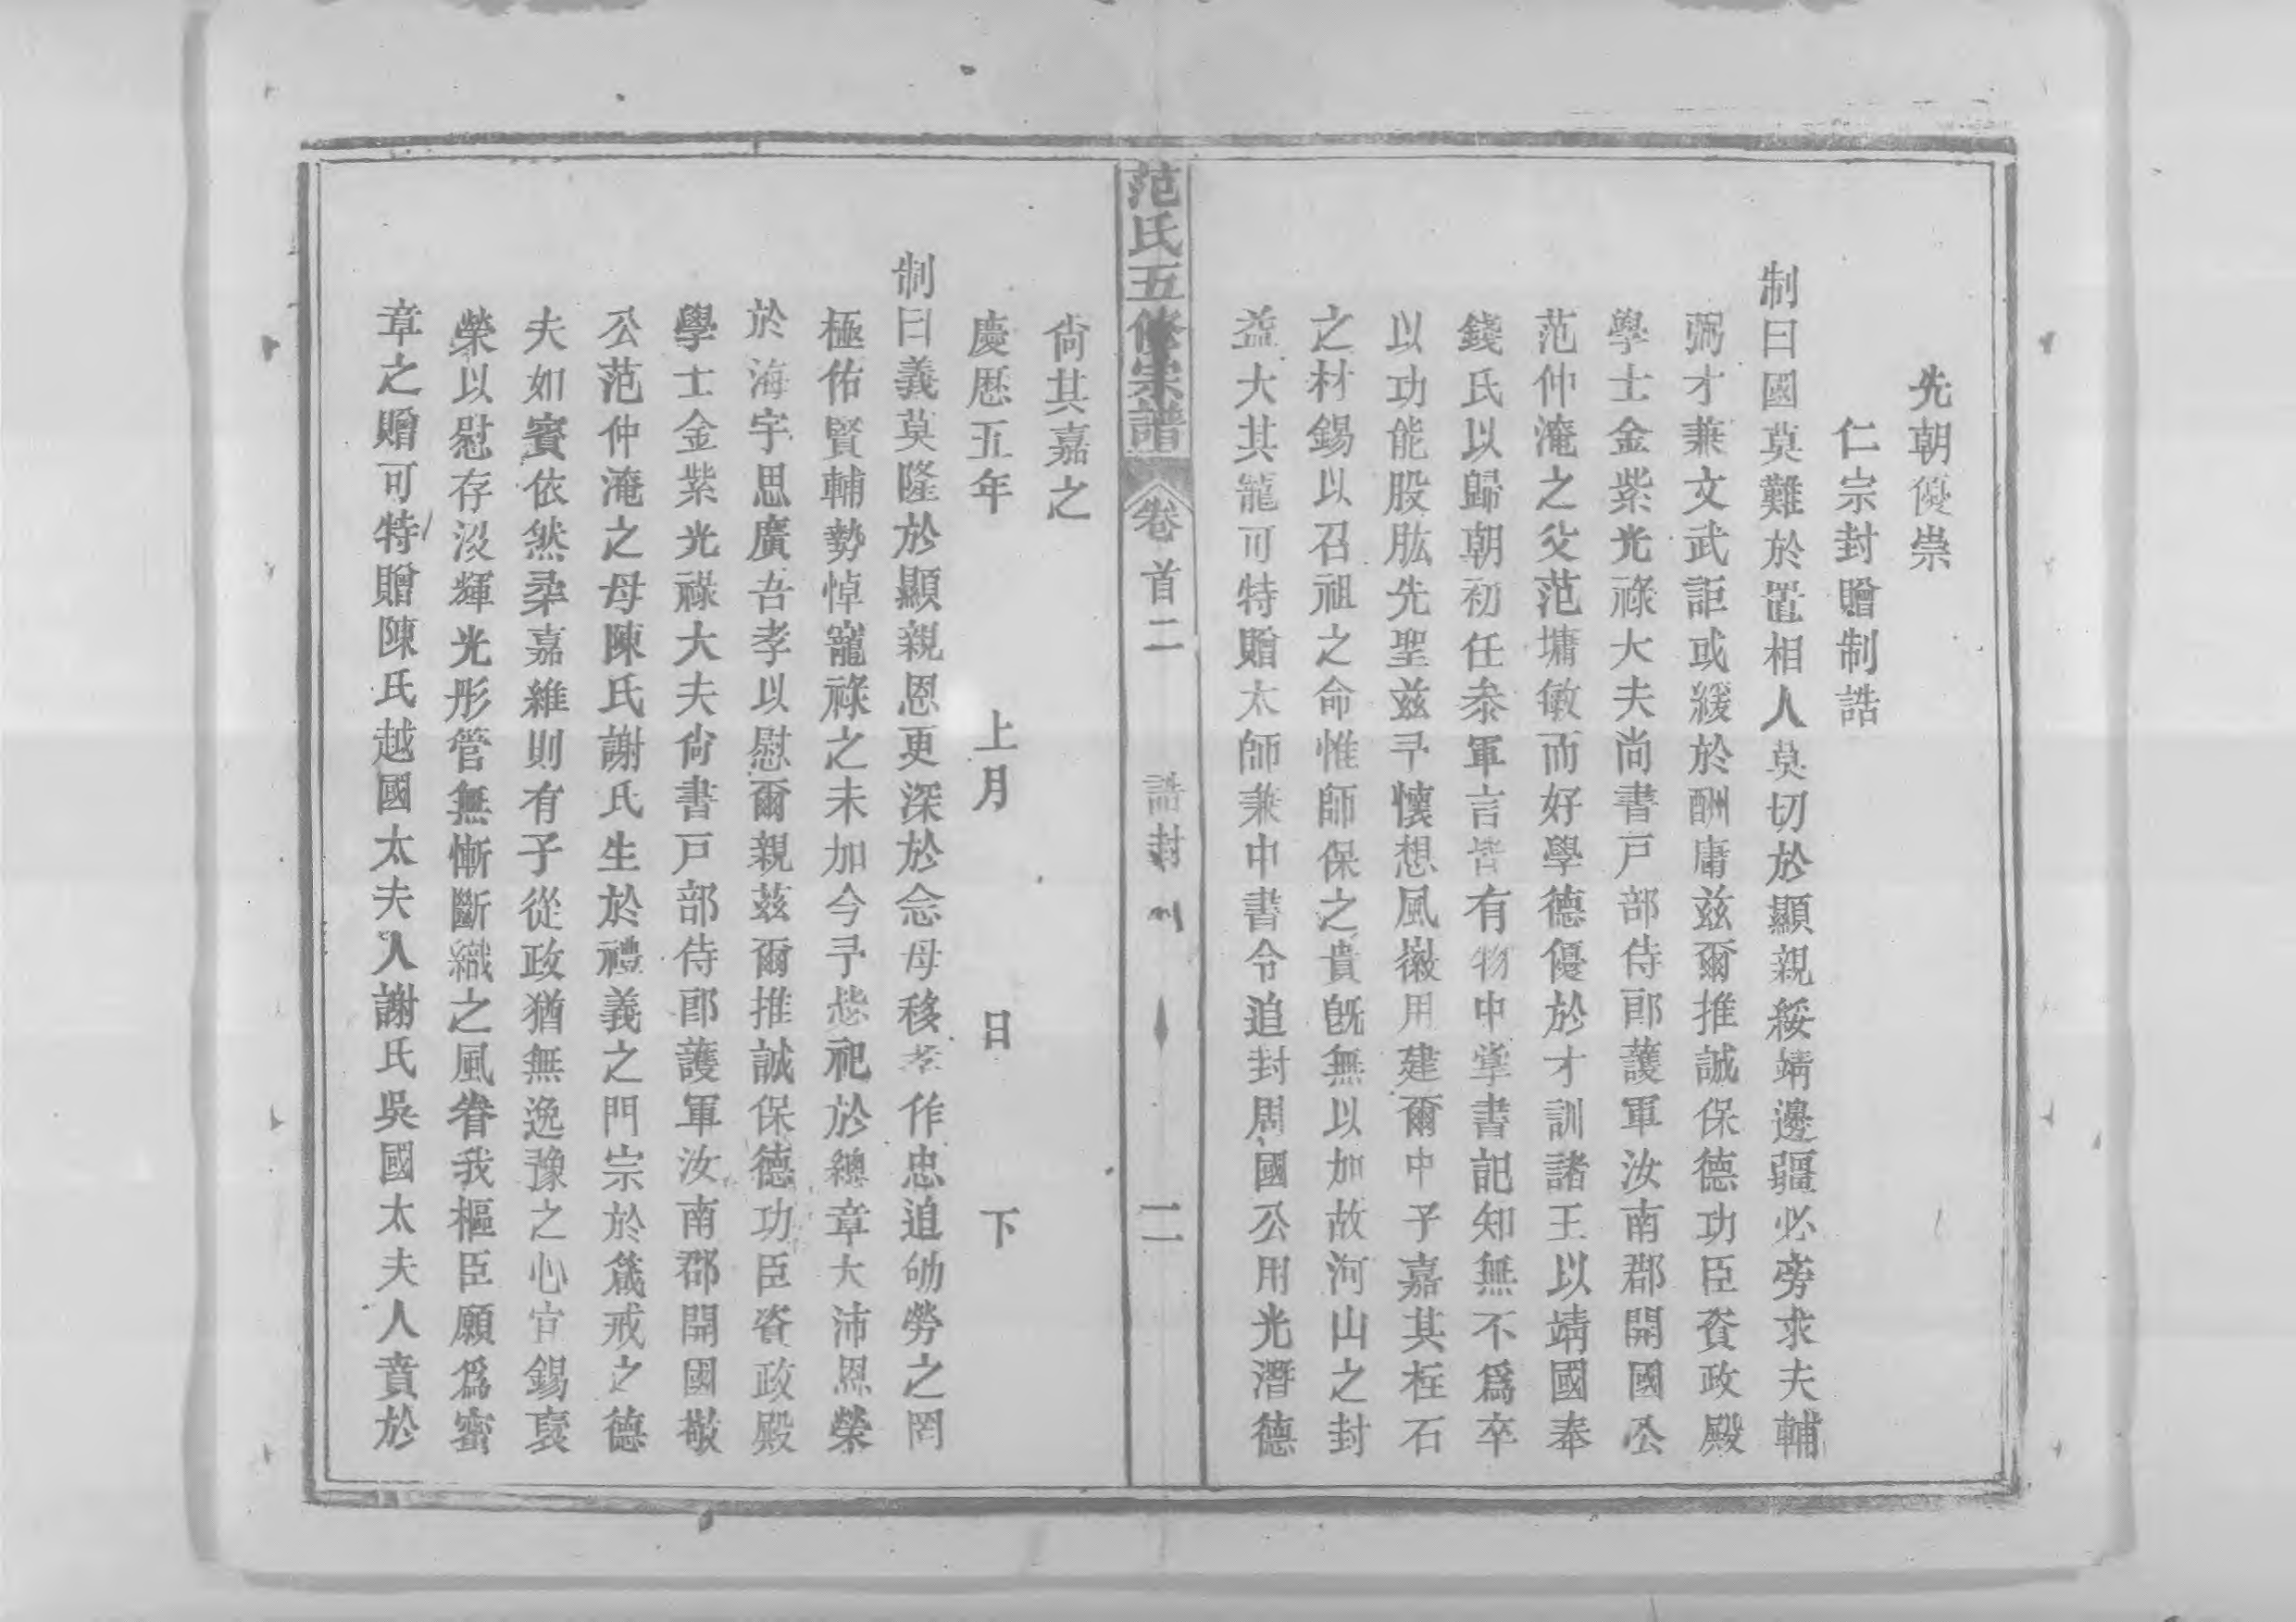 先朝優崇
仁宗封贈制誥
制曰國莫難於置相人莫切於顯親綏靖邊疆必旁求夫輔
弼才兼文武詎或緩於酬庸茲爾推誠保德功臣資政殿
學士金紫光祿大夫尚書戸部侍郎護軍汝南郡開國公
范仲淹之父范墉敏而好學德優於才訓諸王以靖國奉
錢氏以歸朝初任叅軍言皆有物中掌書記知無不爲卒
以功能股肱先聖茲予懷想風徽用建爾中子嘉其柱石
之材錫以召祖之命惟師保之貴既無以加故河山之封
益大其寵可特贈太師兼中書令追封周國公用光潛德
范氏五修宗譜 卷首二 誥封 二
尙其嘉之
慶歷五年 上月 日 下
制曰義莫隆於顯親恩更深於念母移孝作忠追劬勞之罔
極佑賢輔勢悼寵祿之未加今予恭祀於總章大沛恩榮
於海宇思廣吾孝以慰爾親茲爾推誠保德功臣資政殿
學士金紫光祿大夫尙書戸部侍郎護軍汝南郡開國
公范仲淹之母陳氏謝氏生於禮義之門宗於箴戒之德
夫如賓依然嘉維則有子從政猶無逸豫之心宜錫褒
榮以慰存沒輝光彤管無慚斷織之風眷我樞臣願爲密
章之贈可特贈陳氏越國太夫人謝氏吳國太夫人賁於